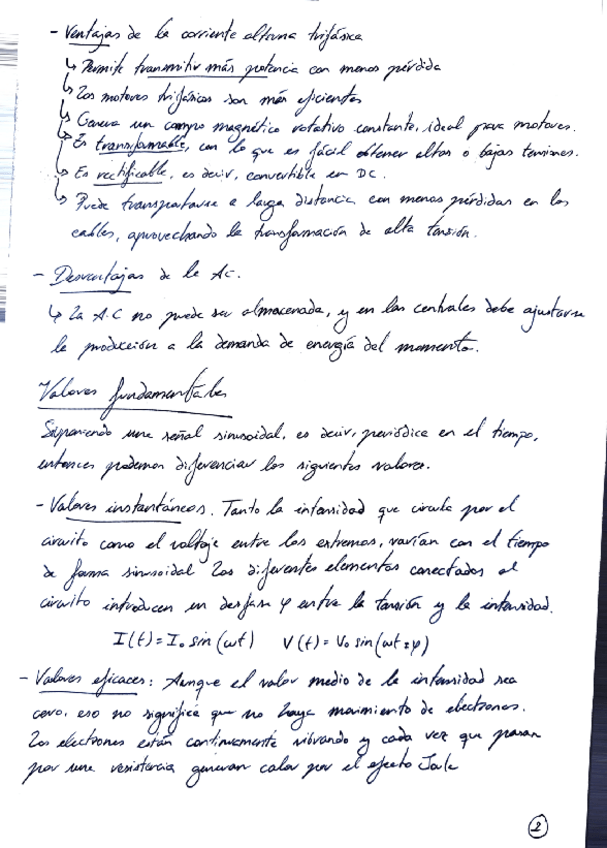 - Ventajas de la corriente alterna trifásica
↳ Permite transmitir más potencia con menos pérdida
↳ Los motores trifásicos son más eficientes
↳ Genera un campo magnético rotativo constante, ideal para motores.
↳ Es transformable, con lo que es fácil obtener altas o bajas tensiones.
↳ Es rectificable, es decir, convertible en DC.
↳ Puede transportarse a larga distancia con menos pérdidas en los
cables, aprovechando la transformación de alta tensión.
- Desventajas de la AC.
↳ La A.C no puede ser almacenada, y en las centrales debe ajustarse
la producción a la demanda de energía del momento.
Valores fundamentales
Suponiendo una señal sinusoidal, es decir, periódica en el tiempo,
entonces podemos diferenciar los siguientes valores.
- Valores instantáneos. Tanto la intensidad que circula por el
circuito como el voltaje entre los extremos, varían con el tiempo
de forma sinusoidal. Los diferentes elementos conectados al
circuito introducen un desfase φ entre la tensión y la intensidad.
I(t) = I₀ sin (ωt) V(t) = V₀ sin (ωt ± φ)
- Valores eficaces: Aunque el valor medio de la intensidad sea
cero, eso no significa que no haya movimiento de electrones.
Los electrones están continuamente vibrando y cada vez que pasan
por una resistencia generan calor por el efecto Joule
2